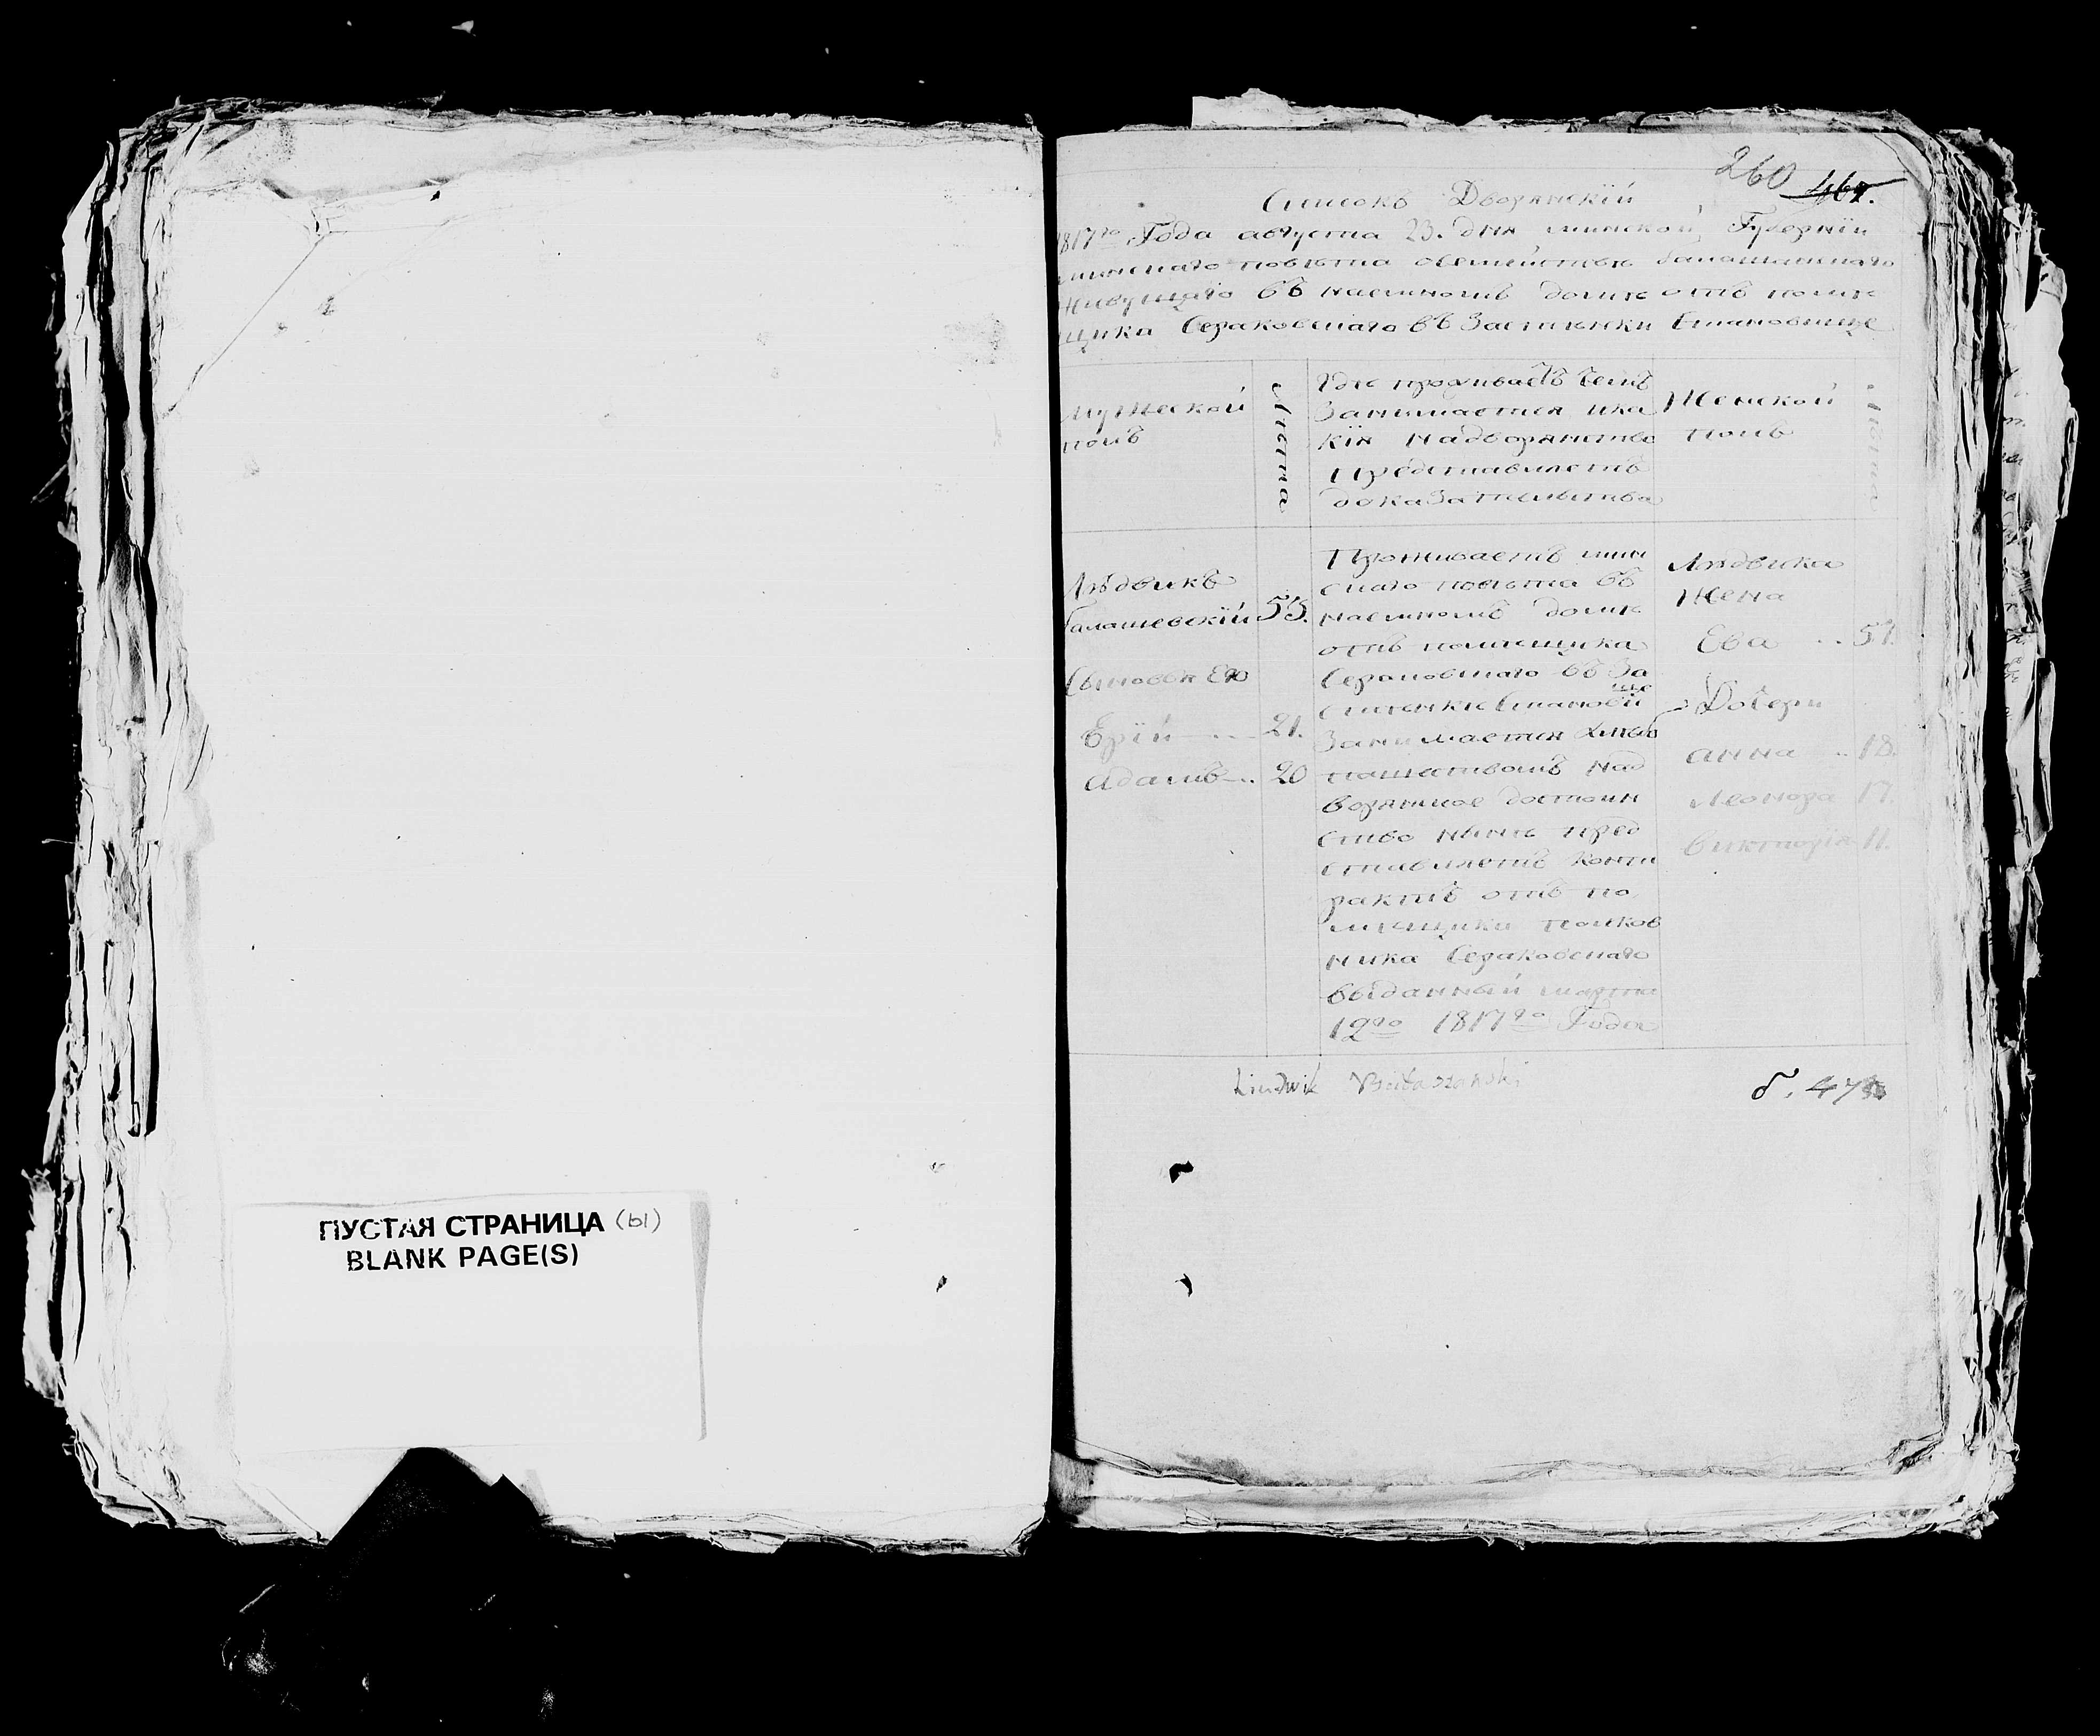 ПУСТАЯ СТРАНИЦА (ы)
BLANK PAGE(S)
260 467.
Списокъ Дворянскій
1817го Года августа 23. дня минской Губерніи
минскаго повѣта осемействѣ
Живущаго въ наемномъ домѣ отъ помѣ
щика Сераковскаго въ Застѣнки Становище
Мужеской
полъ
Лѣта
Где проживаетъ чемъ
Занимается ика
кія надворянство
Представляетъ
доказательства
Женской
полъ
Лѣта
Людвикъ
Балашевскій 53.
Сыновья Его
Ерій 21.
Адамъ 20
Проживаетъ мин
скаго повѣта въ
наемномъ домѣ
отъ помѣщика
Сераковскаго въ За
стѣнкѣ Станови
ще
Занимается хлѣбо
пашествомъ над
ворянское достоин
ство нынѣ пред
ставляетъ конт
рактъ отъ по
мѣщика полков
ника Сераковскаго
выданный марта
12го 1817го Года
Людвика
Жена
Ева 57.
Дочери
анна 18.
Леонора 17.
викторія 11.
Ludwik